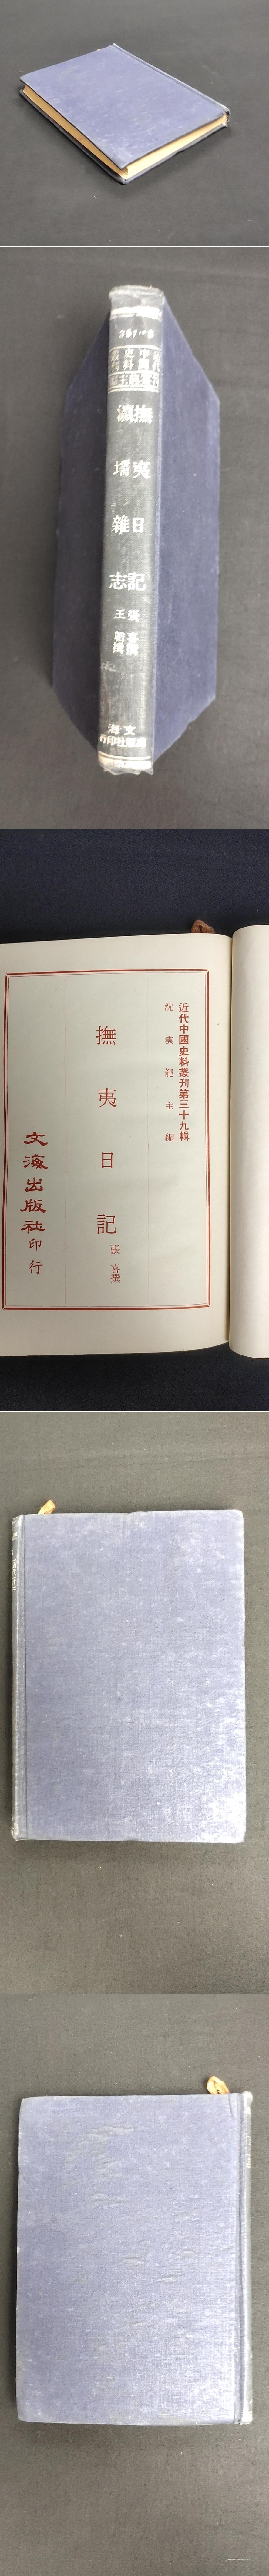 撫夷日記
張喜撰
瀛壖雜志
王韜撰
文海
出版社印行
近代中國史料叢刊第三十九輯
沈雲龍主編
撫夷日記
張喜撰
文海出版社印行